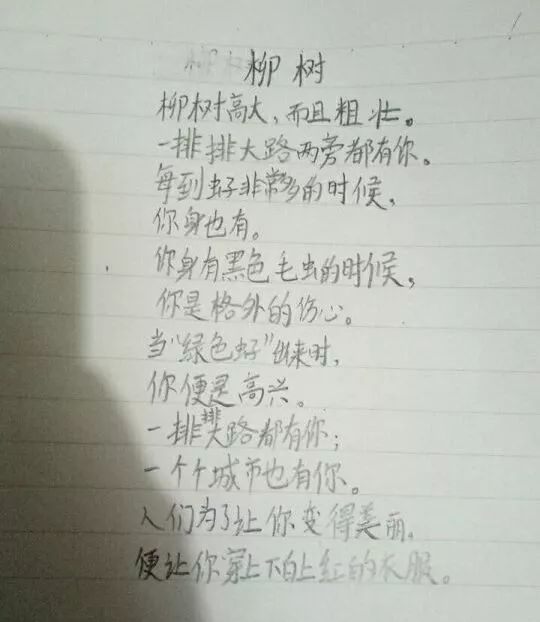 柳树
柳树高大,而且粗壮。
一排排大路两旁都有你。
每到虫子非常多的时候,
你身也有。
你身有黑色毛虫的时候,
你是格外的伤心。
当“绿色虫子”出来时,
你便是高兴。
一排排大路都有你;
一个个城市也有你。
人们为了让你变得美丽,
便让你穿上下白上红的衣服。